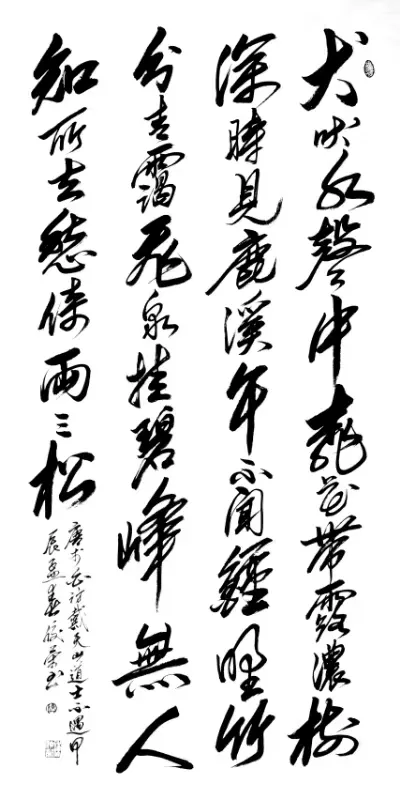 犬吠水聲中桃花帶露濃樹
深時見鹿溪午不聞鐘野竹
分青靄飛泉挂碧峰無人
知所去愁倚兩三松
唐李白訪戴天山道士不遇甲
辰孟春